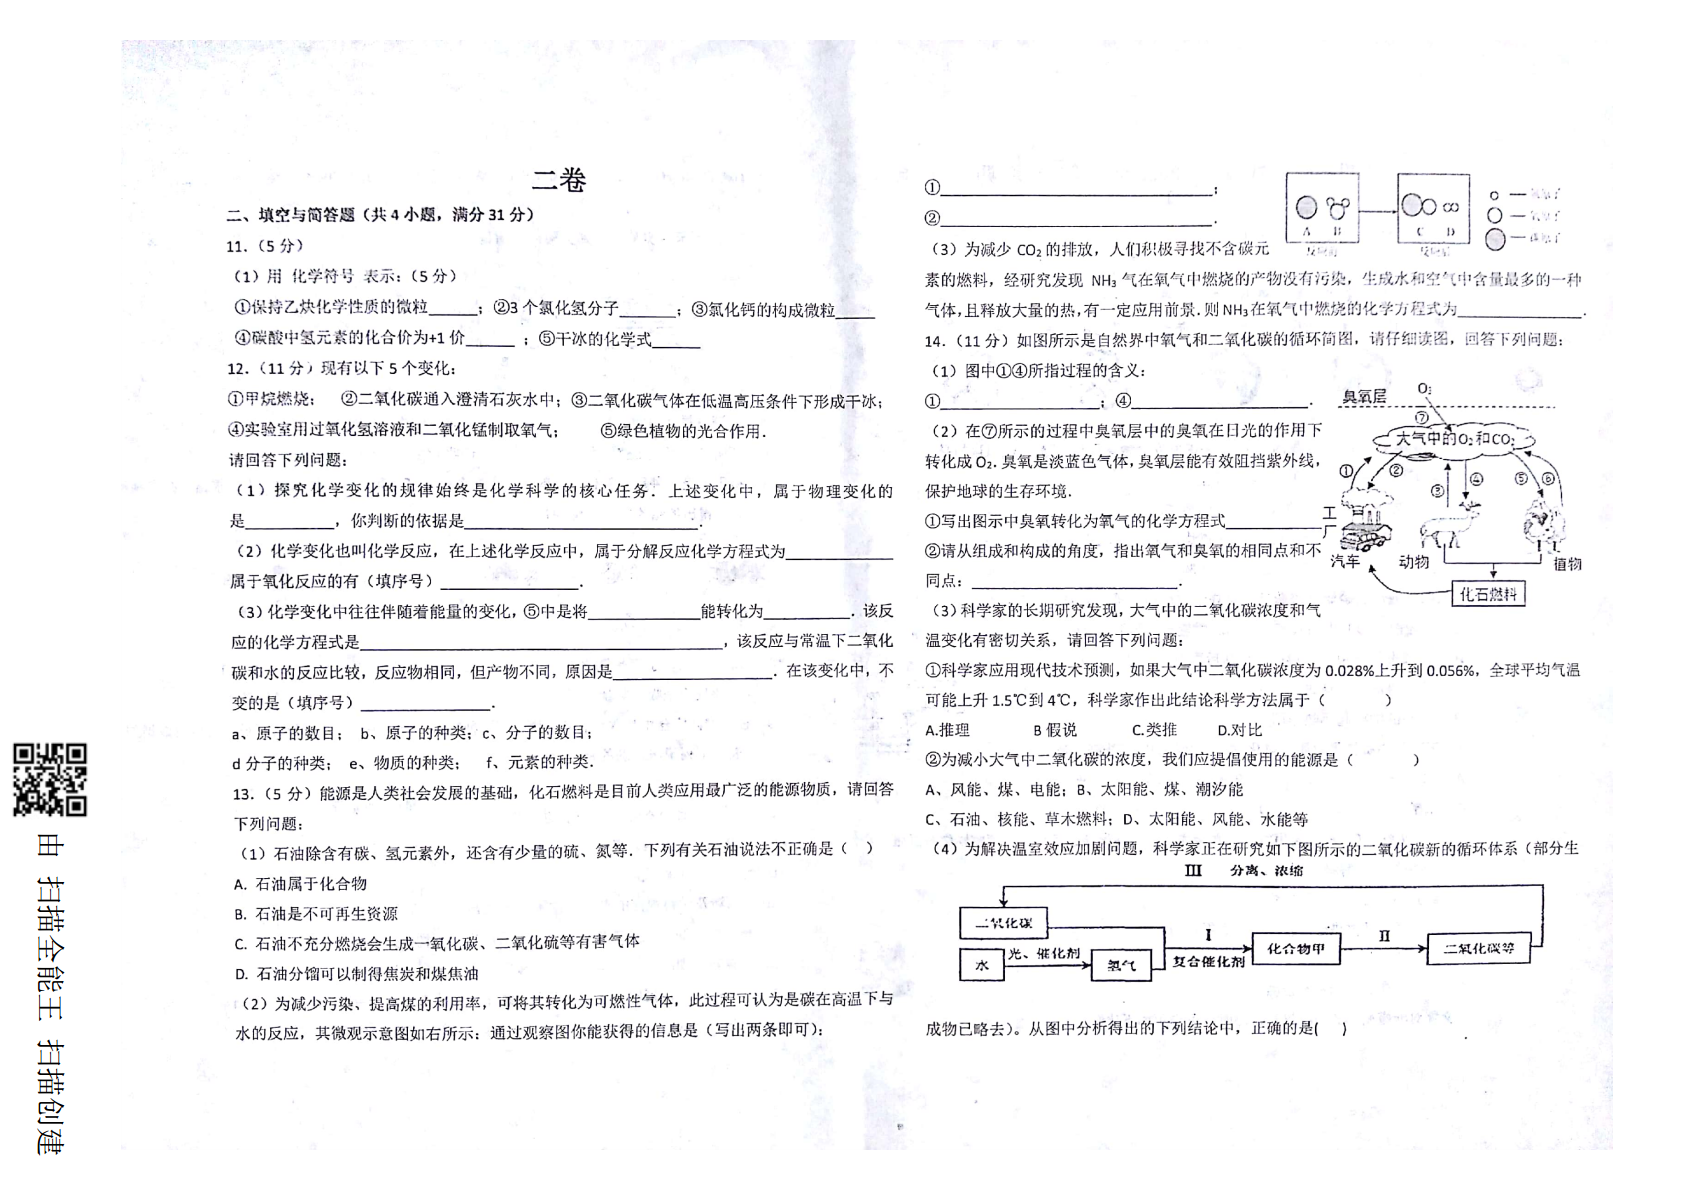 二卷
二、填空与简答题（共4小题，满分31分）
11.（5分）
（1）用 化学符号 表示:（5分）
①保持乙炔化学性质的微粒______；②3个氯化氢分子_______；③氯化钙的构成微粒_____
④碳酸中氢元素的化合价为+1价______ ；⑤干冰的化学式______
12.（11分）现有以下5个变化:
①甲烷燃烧； ②二氧化碳通入澄清石灰水中；③二氧化碳气体在低温高压条件下形成干冰；
④实验室用过氧化氢溶液和二氧化锰制取氧气； ⑤绿色植物的光合作用．
请回答下列问题：
（1）探究化学变化的规律始终是化学科学的核心任务．上述变化中，属于物理变化的
是___________，你判断的依据是_____________________________．
（2）化学变化也叫化学反应，在上述化学反应中，属于分解反应化学方程式为_____________
属于氧化反应的有（填序号）_________________．
（3）化学变化中往往伴随着能量的变化,⑤中是将______________能转化为___________．该反
应的化学方程式是_____________________________________________，该反应与常温下二氧化
碳和水的反应比较，反应物相同，但产物不同，原因是____________________．在该变化中，不
变的是（填序号）________________．
a、原子的数目； b、原子的种类；c、分子的数目；
d 分子的种类； e、物质的种类； f、元素的种类．
13.（5 分）能源是人类社会发展的基础，化石燃料是目前人类应用最广泛的能源物质，请回答
下列问题：
（1）石油除含有碳、氢元素外，还含有少量的硫、氮等．下列有关石油说法不正确是（ ）
A. 石油属于化合物
B. 石油是不可再生资源
C. 石油不充分燃烧会生成一氧化碳、二氧化硫等有害气体
D. 石油分馏可以制得焦炭和煤焦油
（2）为减少污染、提高煤的利用率，可将其转化为可燃性气体，此过程可认为是碳在高温下与
水的反应，其微观示意图如右所示；通过观察图你能获得的信息是（写出两条即可）：
①__________________________________；
②__________________________________．
A B C D
（3）为减少 CO₂的排放，人们积极寻找不含碳元
素的燃料，经研究发现 NH₃ 气在氧气中燃烧的产物没有污染，生成水和空气中含量最多的一种
气体,且释放大量的热,有一定应用前景.则NH₃在氧气中燃烧的化学方程式为________________．
14.（11 分）如图所示是自然界中氧气和二氧化碳的循环简图，请仔细读图，回答下列问题：
（1）图中①④所指过程的含义：
①____________________；④______________________．
（2）在⑦所示的过程中臭氧层中的臭氧在日光的作用下
转化成O₂．臭氧是淡蓝色气体,臭氧层能有效阻挡紫外线,
保护地球的生存环境．
①写出图示中臭氧转化为氧气的化学方程式____________
②请从组成和构成的角度，指出氧气和臭氧的相同点和不
同点：__________________________．
臭氧层
O₃
⑦
大气中的O₂和CO₂
① ② ③ ④ ⑤ ⑥
工厂
汽车 动物 植物
化石燃料
（3）科学家的长期研究发现,大气中的二氧化碳浓度和气
温变化有密切关系，请回答下列问题：
①科学家应用现代技术预测，如果大气中二氧化碳浓度为 0.028%上升到 0.056%，全球平均气温
可能上升 1.5℃到 4℃，科学家作出此结论科学方法属于（ ）
A.推理 B 假说 C.类推 D.对比
②为减小大气中二氧化碳的浓度，我们应提倡使用的能源是（ ）
A、风能、煤、电能；B、太阳能、煤、潮汐能
C、石油、核能、草木燃料；D、太阳能、风能、水能等
（4）为解决温室效应加剧问题，科学家正在研究如下图所示的二氧化碳新的循环体系（部分生
III 分离、浓缩
二氧化碳
水
光、催化剂
氢气
I
复合催化剂
化合物甲
II
二氧化碳等
成物已略去）。从图中分析得出的下列结论中，正确的是( )
由 扫描全能王 扫描创建